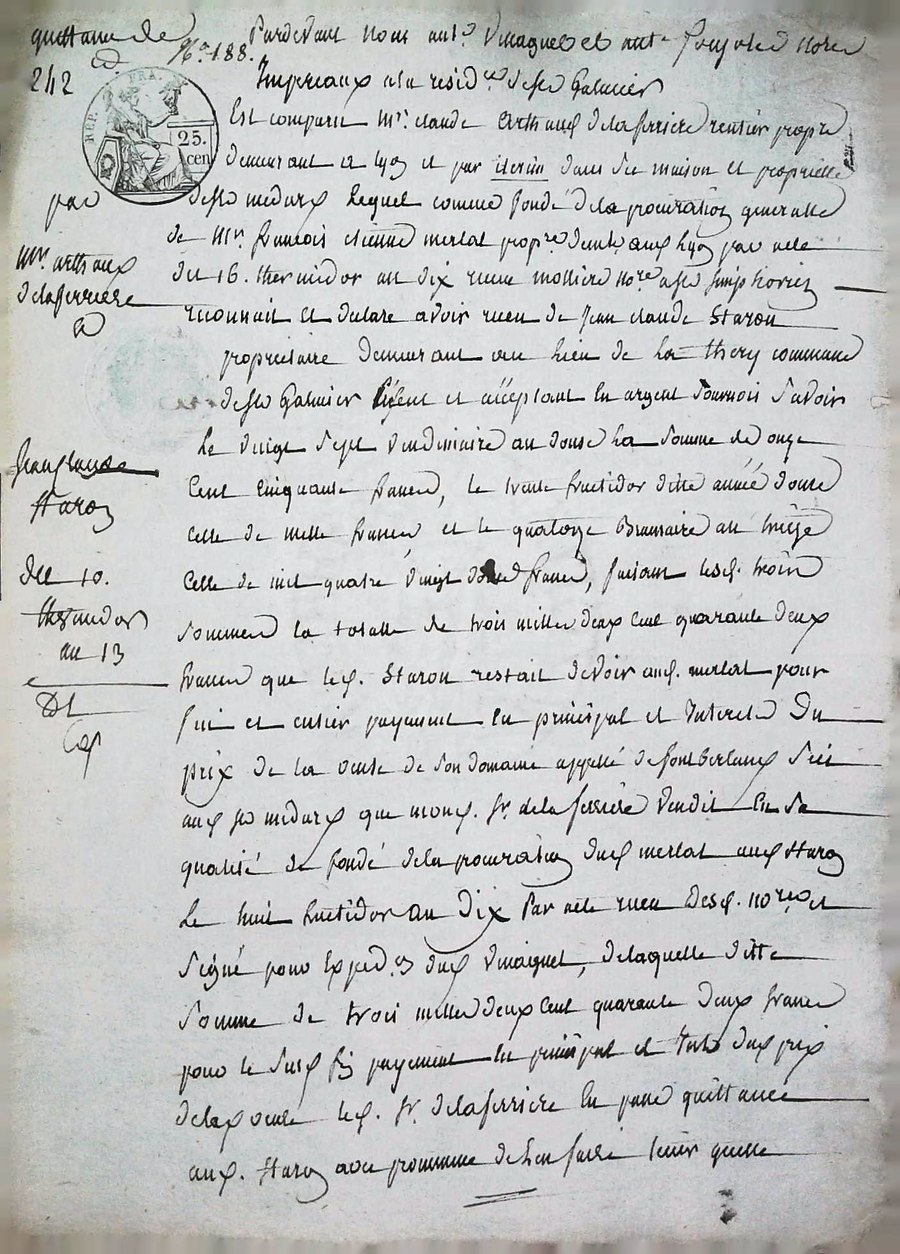 quittance de
242
No. 188.
REP. FRA.
25.
cen
par
Mr. arthaud
delaferriere
a
Jean Claude
Staron
Du 10.
thermidor
an 13
Pardevant nous ant. Vinagnet et ant. notres
Imperiaux a la resid.ce de st Galmier
Est comparu Mr. claude arthaud delaferriere rentier propre
demeurant a lyon et par dans sa maison et propriette
de st medard lequel comme fondé de la procuration generalle
de Mr. francois etienne merlat propre demt. aud lyon par acte
du 16. thermidor an dix recue mollière nore a st simphorien
reconnait et declare avoir recu de Jean claude Staron
propriettaire demeurant au lieu de la thery commune
de st Galmier présent et acceptant en argent sonnois savoir
le vingt sept vendimiaire an douse la somme de onze
cent cinquante francs, le trente fructidor ditte année douse
celle de mille francs et le quatorze Brumaire an treize
celle de mil quatre vingt douse francs, faisant lesd. trois
sommes la totalle de trois mille deux cent quarante deux
francs que led. Staron restait devoir aud. merlat pour
fin et entier payement en principal et interets du
prix de la vente de son domaine appellé de fontberland scis
aud st medard que mond. sr. delaferriere vendit en sa
qualité de fondé de la procuration dud merlat aud Staron
le huit fructidor an dix par acte recu desd. nores et
signé pour exped.on dud Vinagnet, de laquelle ditte
somme de trois mille deux cent quarante deux francs
pour le susd fin payement en principal et intts dud prix
de lad vente led. sr. delaferriere en passe quittance
aud. Staron avec promesse de l'en faire tenir quitte